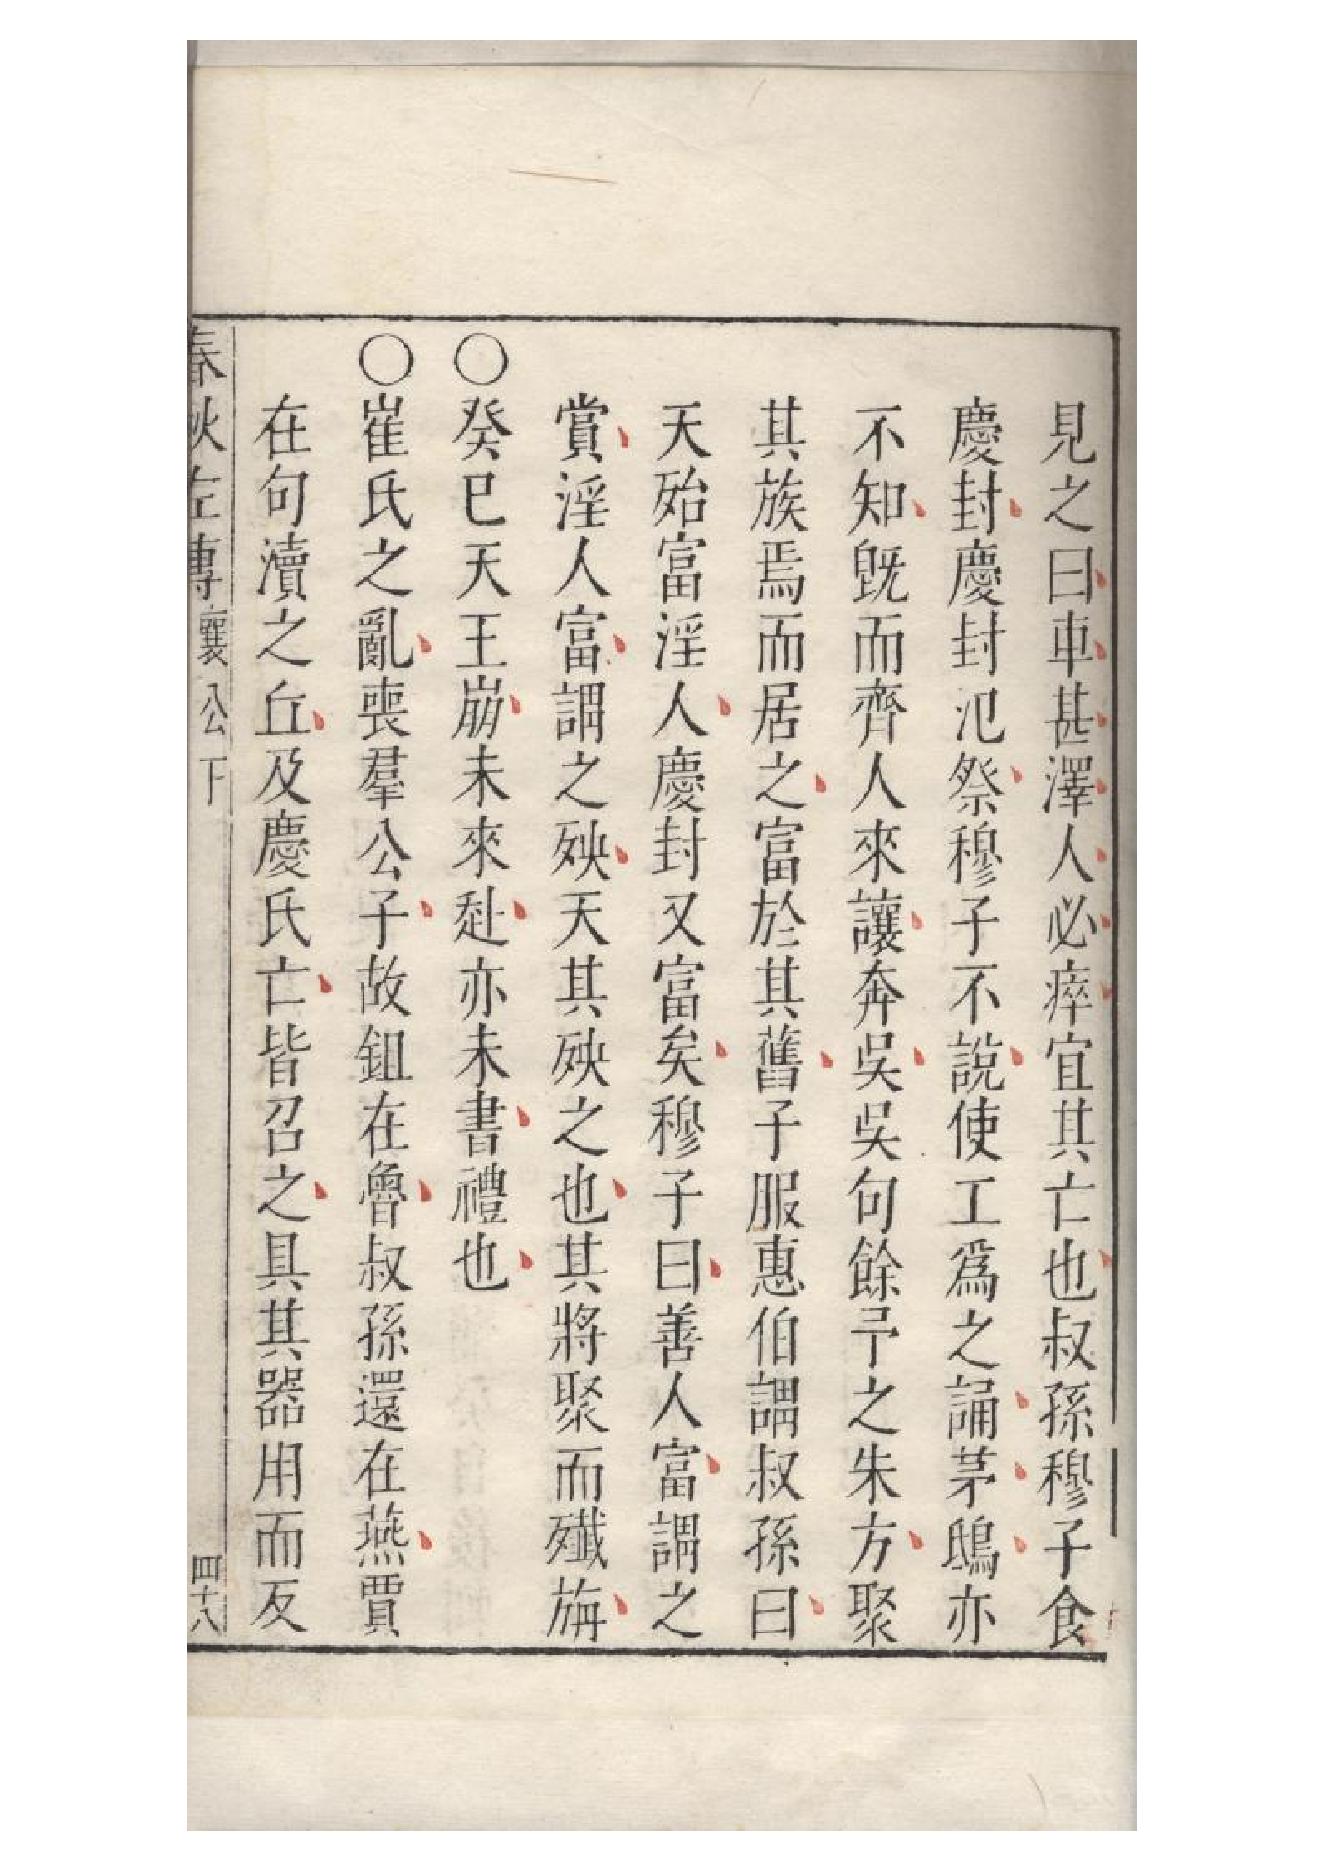 見之曰車甚澤人必瘁宜其亡也叔孫穆子食
慶封慶封氾祭穆子不說使工爲之誦茅鴟亦
不知旣而齊人來讓奔吳吳句餘予之朱方聚
其族焉而居之富於其舊子服惠伯謂叔孫曰
天殆富淫人慶封又富矣穆子曰善人富謂之
賞淫人富謂之殃天其殃之也其將聚而殲旃
〇癸巳天王崩未來赴亦未書禮也
〇崔氏之亂喪羣公子故鉏在魯叔孫還在燕賈
在句瀆之丘及慶氏亡皆召之具其器用而反
春秋左傳襄公下 四十八